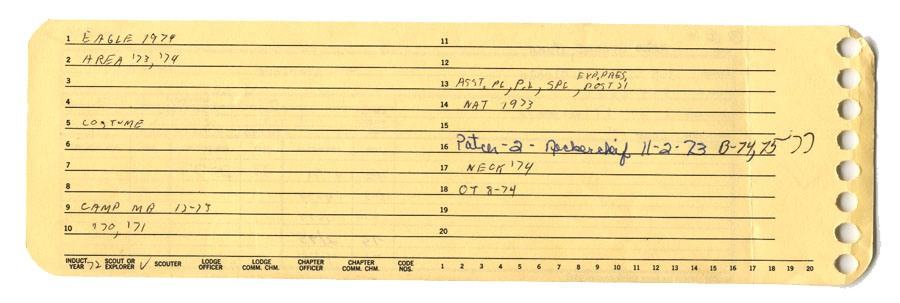 1 EAGLE 1974
2 AREA '73, '74
3
4
5 COSTUME
6
7
8
9 CAMP MA 12-73
10 '70, '71
11
12
13 ASST. PL, P.L, SPL, EXP. PRES, POST 21
14 NAT 1973
15
16 Patch-2- Neckerchief 11-2-73 B-74, 75 '77
17 NECK '74
18 OT 8-74
19
20
INDUCT. YEAR 72 SCOUT OR EXPLORER ✓ SCOUTER LODGE OFFICER LODGE COMM. CHM. CHAPTER OFFICER CHAPTER COMM. CHM. CODE NOS. 1 2 3 4 5 6 7 8 9 10 11 12 13 14 15 16 17 18 19 20